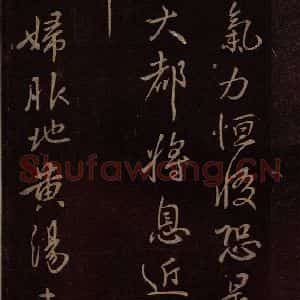 氣力恒㾗恐是
大都將息近
婦服地黄湯
Shufawang.CN